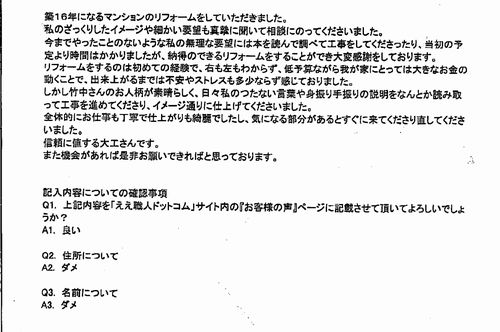 築16年になるマンションのリフォームをしていただきました。
私のざっくりしたイメージや細かい要望も真摯に聞いて相談にのってくださいました。
今までやったことのないような私の無理な要望には本を読んで調べて工事をしてくださったり、当初の予
定より時間はかかりましたが、納得のできるリフォームをすることができ大変感謝をしております。
リフォームをするのは初めての経験で、右も左もわからず、低予算ながら我が家にとっては大きなお金の
動くことで、出来上がるまでは不安やストレスも多少ならず感じておりました。
しかし竹中さんのお人柄が素晴らしく、日々私のつたない言葉や身振り手振りの説明をなんとか読み取
って工事を進めてくださり、イメージ通りに仕上げてくださいました。
全体的にお仕事も丁寧で仕上がりも綺麗でしたし、気になる部分があるとすぐに来てくださり直してくださ
いました。
信頼に値する大工さんです。
また機会があれば是非お願いできればと思っております。
記入内容についての確認事項
Q1. 上記内容を「ええ職人ドットコム」サイト内の『お客様の声』ページに記載させて頂いてよろしいでしょ
うか？
A1. 良い
Q2. 住所について
A2. ダメ
Q3. 名前について
A3. ダメ